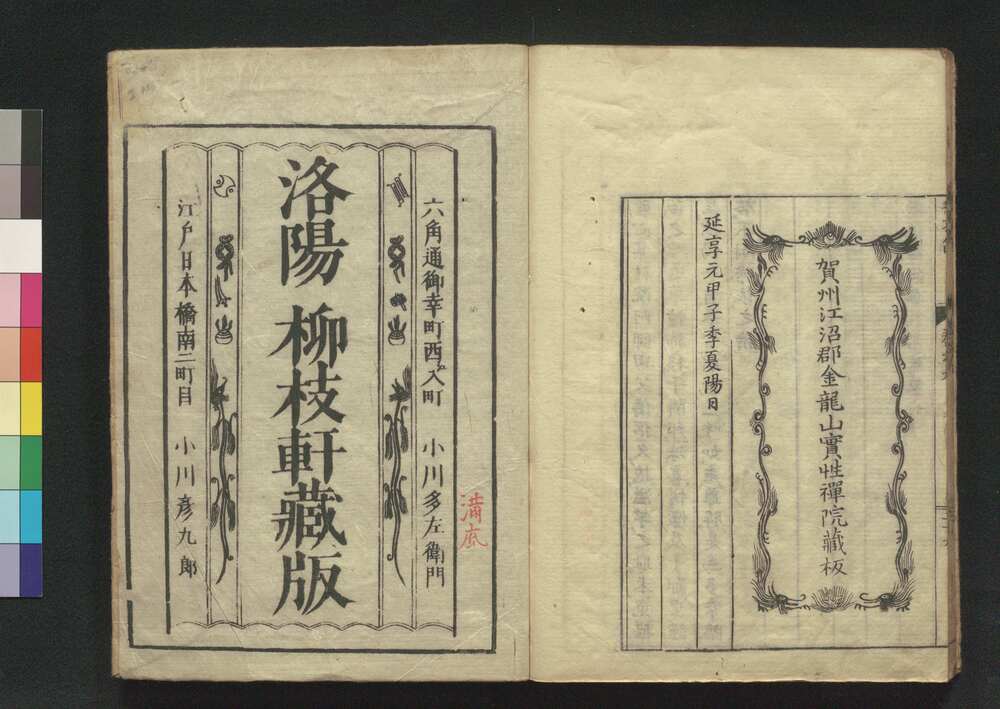 賀州江沼郡金龍山實性禪院藏板
延享元甲子季夏陽日
六角通御幸町西入町 小川多左衞門
洛陽 柳枝軒藏版
江戸日本橋南二町目 小川彦九郎